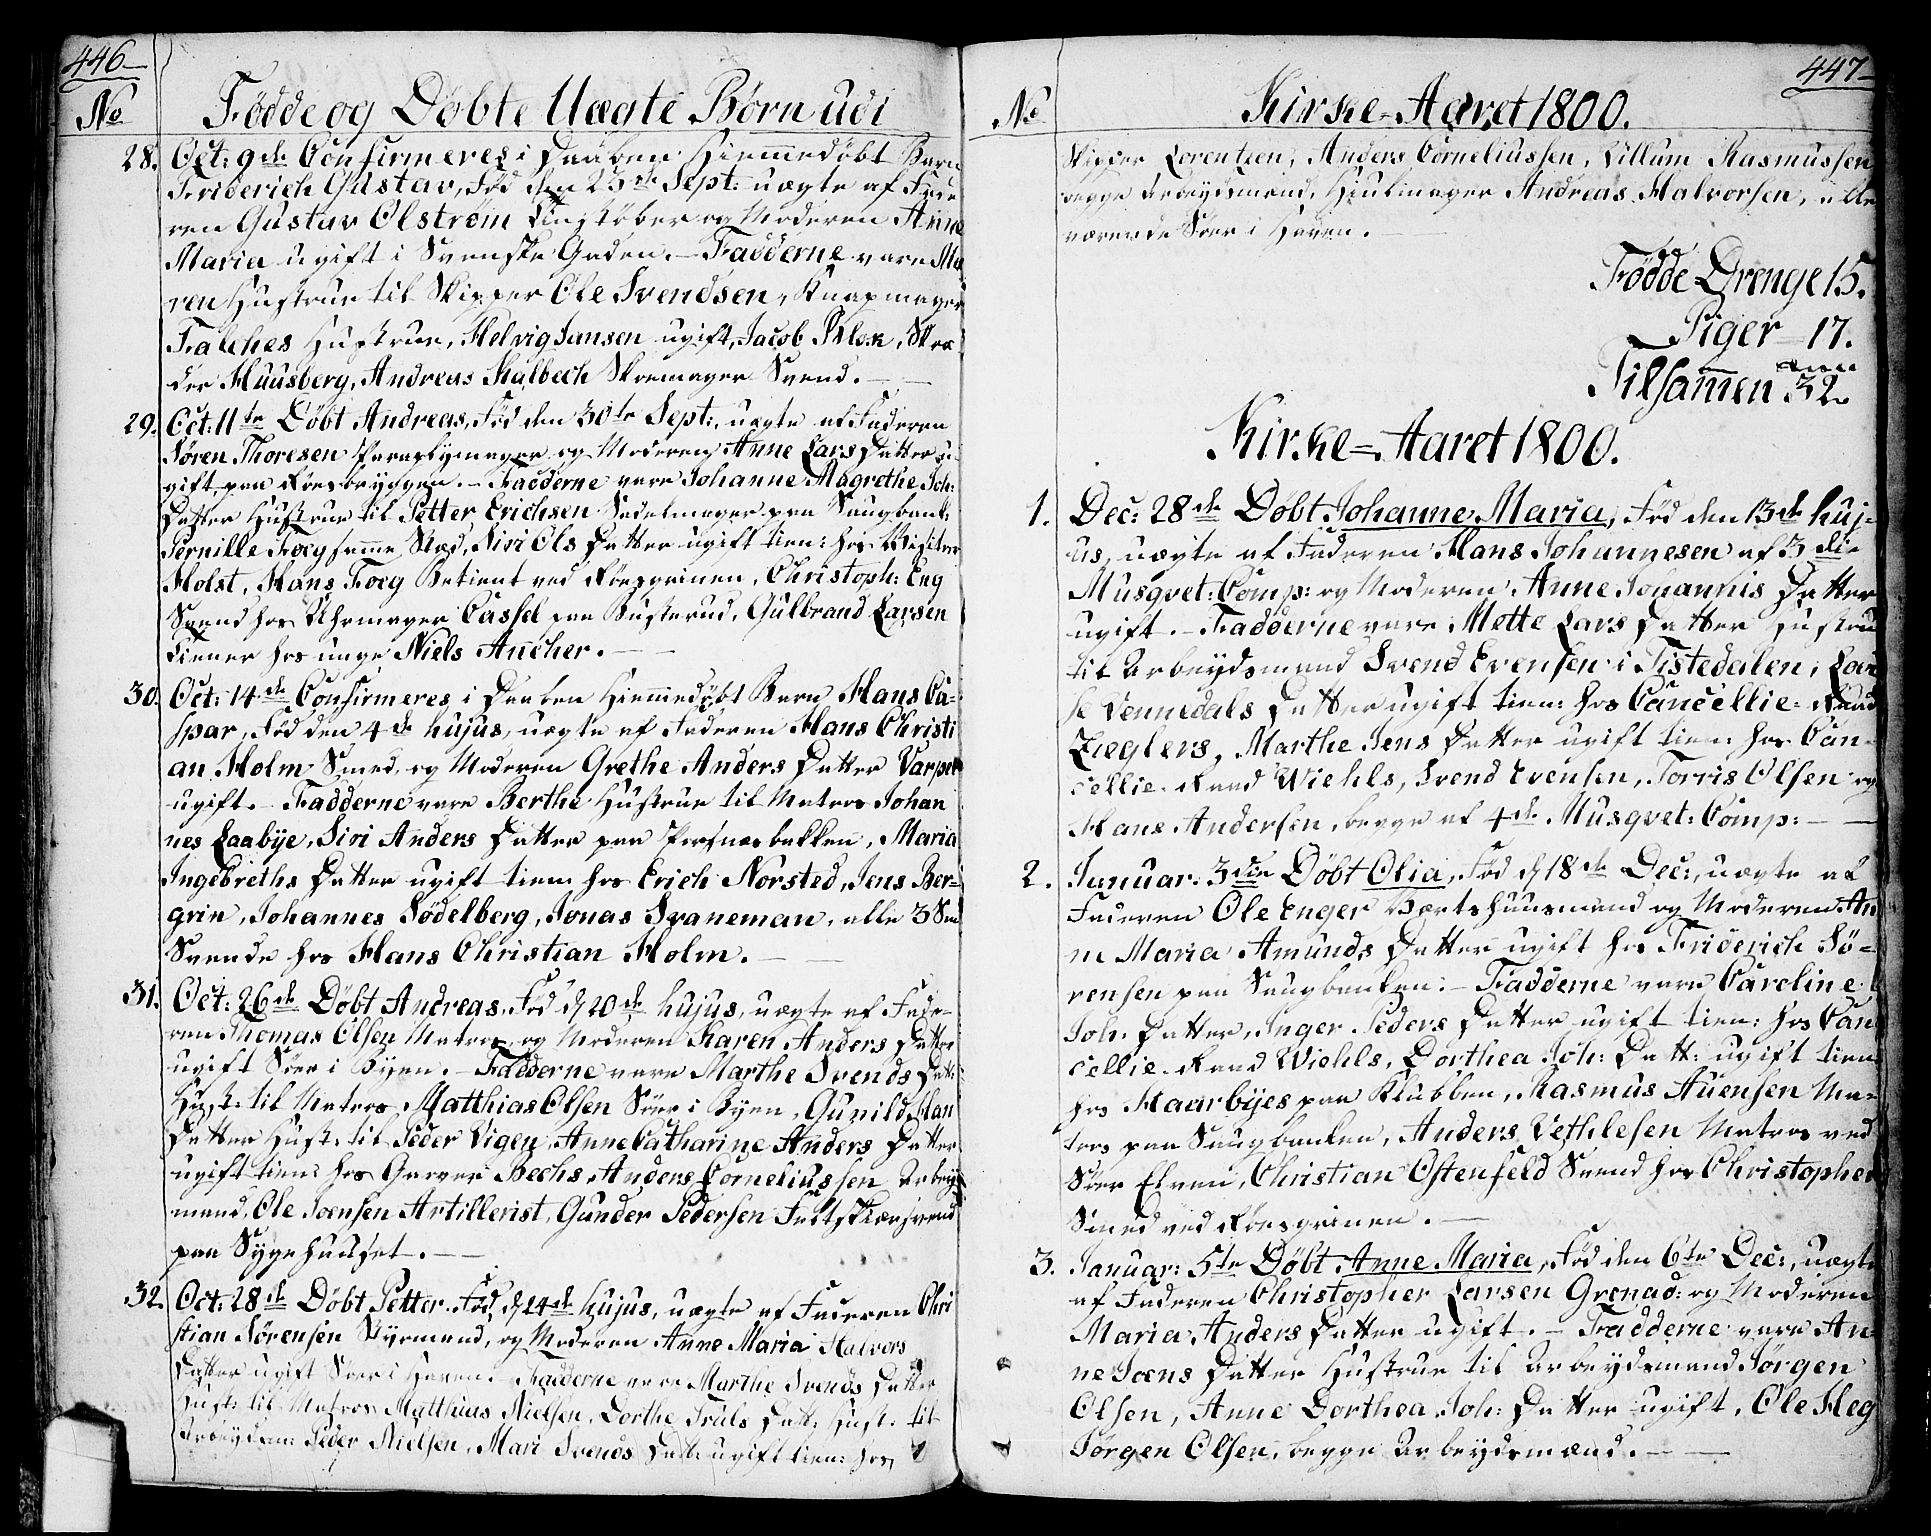 446
No
Fødde og Døbte Uægte Børn udi
28. Oct: 9de Confirmeres i Daaben Hiemmedøbt Barn
Friderich Gustav, Fød den 23de Sept: uægte af Fade
ren Gustav Olström og Moderen Anne
Maria ugift i Svenske Gaden. - Fadderne vare Ma
ren Hustrue til Skipper Ole Svendsen, Knapmager
Falches Hustrue, Helvig Jansen ugift, Jacob Skra
der Huusberg, Andreas Kalbech Skoemager Svend. -
29. Oct: 11te Døbt Andreas, Fød den 30te Sept:, uægte af Faderen
Søren Thoresen og Moderen Anne Lars Datter u-
gift paa Kongsbryggen. - Fadderne vare Johanne Magrethe Joh:
Datter Hustrue til Petter Erichsen Sadelmager paa Saugbank:
Pernille Foeg samme Stæd, Siri Ols Datter ugift tien: hos
Holst, Hans Foeg Betient ved Christoph: Eng
Svend hos Uhrmager Cassel paa Busterud, Gulbrand Larsen
Tiener hos unge Niels Ancher. -
30. Oct: 14de Confirmeres i Daaben Hiemmedøbt Barn Hans Ca-
spar, Fød den 4de hujus, uægte af Faderen Hans Christi
an Holm Smed, og Moderen Grethe Anders Datter Varpet
ugift. - Fadderne vare Berthe Hustrue til Matros Johan
nes Laabye, Siri Anders Datter paa Maria
Ingebreths Datter ugift tien: hos Erich Norsted, Jens Ber-
grin, Johannes Södelberg, Jonas Svaneman, alle 3 Smed
Svende hos Hans Christian Holm. -
31. Oct: 26de Døbt Andreas, Fød d 20de hujus, uægte af Fade-
ren Thomas Olsen Matros, og Moderen Karen Anders Datter
ugift Sør i Byen. - Fadderne vare Marthe Svends Dat:
Hust: til Matros Matthias Olsen Sør i Byen, Gunild Han
Datter Hust: til Peder Vigen, Anne Catharine Anders Datter
ugift tien: hos Garver Bechs, Anders Corneliussen Arbeyds
mand, Ole Joensen Artillerist, Gunder Pedersen
paa Sygehuuset. -
32. Oct: 28de Døbt Petter. Fød d 24de hujus, uægte af Faderen Chri
stian Sørensen Styrmand, og Moderen Anne Maria Halvors
Datter ugift Sør i Haven. Fadderne vare Marthe Svends Datter
Hust: til Matros Matthias Nielsen, Dorthe Truls Dat: Hust: til
Arbeydsm: Peder Nielsen, Mari Svends Datt: ugift tien: hos
447
No
Kirke-Aaret 1800.
Skipper Lorentzen, Anders Corneliussen, Villum Rasmussen
begge Arbeydsmænd, Hiulmager Andreas Halvorsen, alle
værende Sør i Haven. -
Fødde Drenge 15.
Piger - 17.
Tilsamen 32.
Kirke-Aaret 1800.
1. Dec: 28de Døbt Johanne Maria, Fød den 13de huj-
us, uægte af Faderen Hans Johannesen af 3die
Musqvet: Comp: og Moderen Anne Johannis Datter
ugift. - Fadderne vare Mette Lars Datter Hustrue
til Arbeydsmand Svend Evensen i Tistedalen, Lovi
se Vennedals Datter ugift tien: hos Cancellie-Raad
Zieglers, Marthe Jens Datter ugift tien: hos Can-
cellie-Raad Wiehls, Svend Evensen, Torris Olsen og
Hans Andersen, begge af 4de Musqvet: Comp: -
2. Januar: 3die Døbt Olia, Fød d 18de Dec:, uægte af
Faderen Ole Enger Vertshuusmand og Moderen An
ne Maria Amunds Datter ugift hos Friderich Sø-
rensen paa Saugbanken: - Fadderne vare Caroline
Joh: Datter, Inger Peders Datter ugift tien: hos Can
cellie-Raad Wiehls, Dorthea Joh: Datt: ugift tien
hos Haarbyes paa Klubben, Rasmus Auensen Ma-
tros paa Saugbanken, Anders Vethlesen Matros ved
Sør Elven, Christian Ostenfeld Svend hos Christopher
Smed ved
3. Januar: 5te Døbt Anne Maria, Fød den 6te Dec:, uægte
af Faderen Christopher Larsen Grenad: og Moderen
Maria Anders Datter ugift. - Fadderne vare An-
ne Joens Datter Hustrue til Arbeydsmand Jørgen
Olsen, Anne Dorthea Joh: Datter ugift, Ole Heg
Jørgen Olsen, begge Arbeydsmænd. -